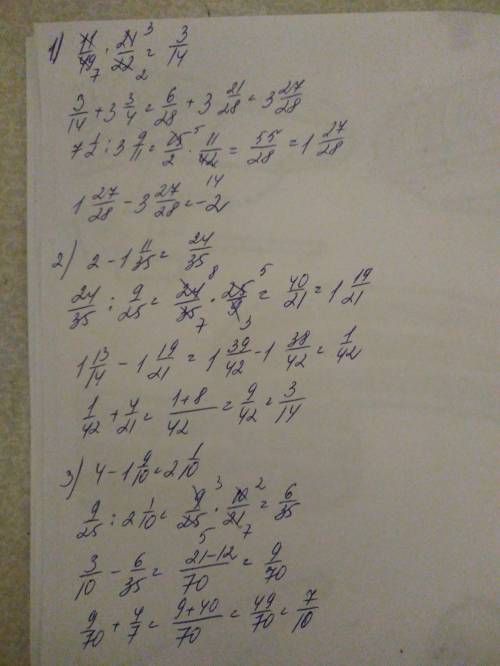 1) 11/49 · 21/22 = 3/14 3 7 2
3/14 + 3 3/4 = 6/28 + 3 21/28 = 3 27/28
7 1/2 : 3 9/11 = 15/2 · 11/42 = 55/28 = 1 27/28 5 14
1 27/28 - 3 27/28 = -2
2) 2 - 1 11/35 = 24/35
24/35 : 9/25 = 24/35 · 25/9 = 40/21 = 1 19/21 8 5 7 3
1 13/14 - 1 19/21 = 1 39/42 - 1 38/42 = 1/42
1/42 + 4/21 = 1+8/42 = 9/42 = 3/14
3) 4 - 1 9/10 = 2 1/10
9/25 : 2 1/10 = 9/25 · 10/21 = 6/35 3 2 5 7
3/10 - 6/35 = 21-12/70 = 9/70
9/70 + 4/7 = 9+40/70 = 49/70 = 7/10